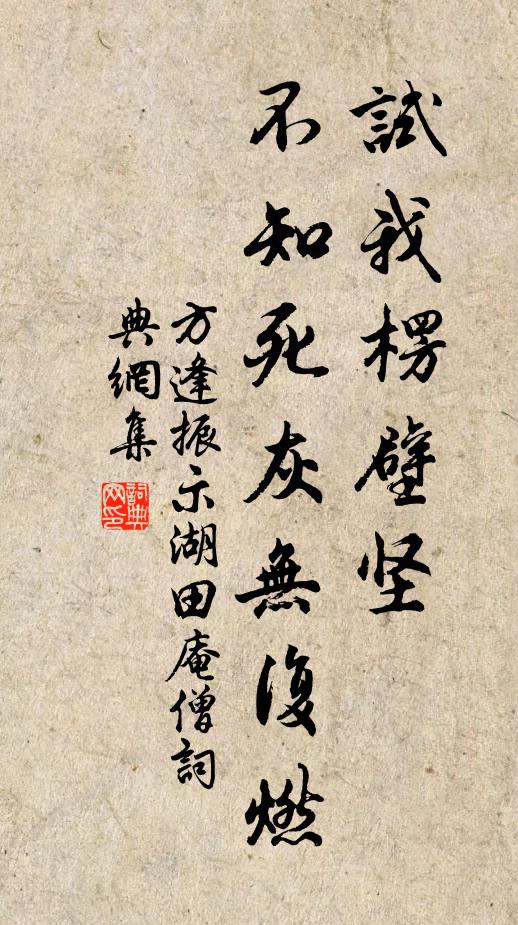 試我楞壁坚
不知死灰無復燃
方逢振示湖田庵僧詞
典網集
詞典网印